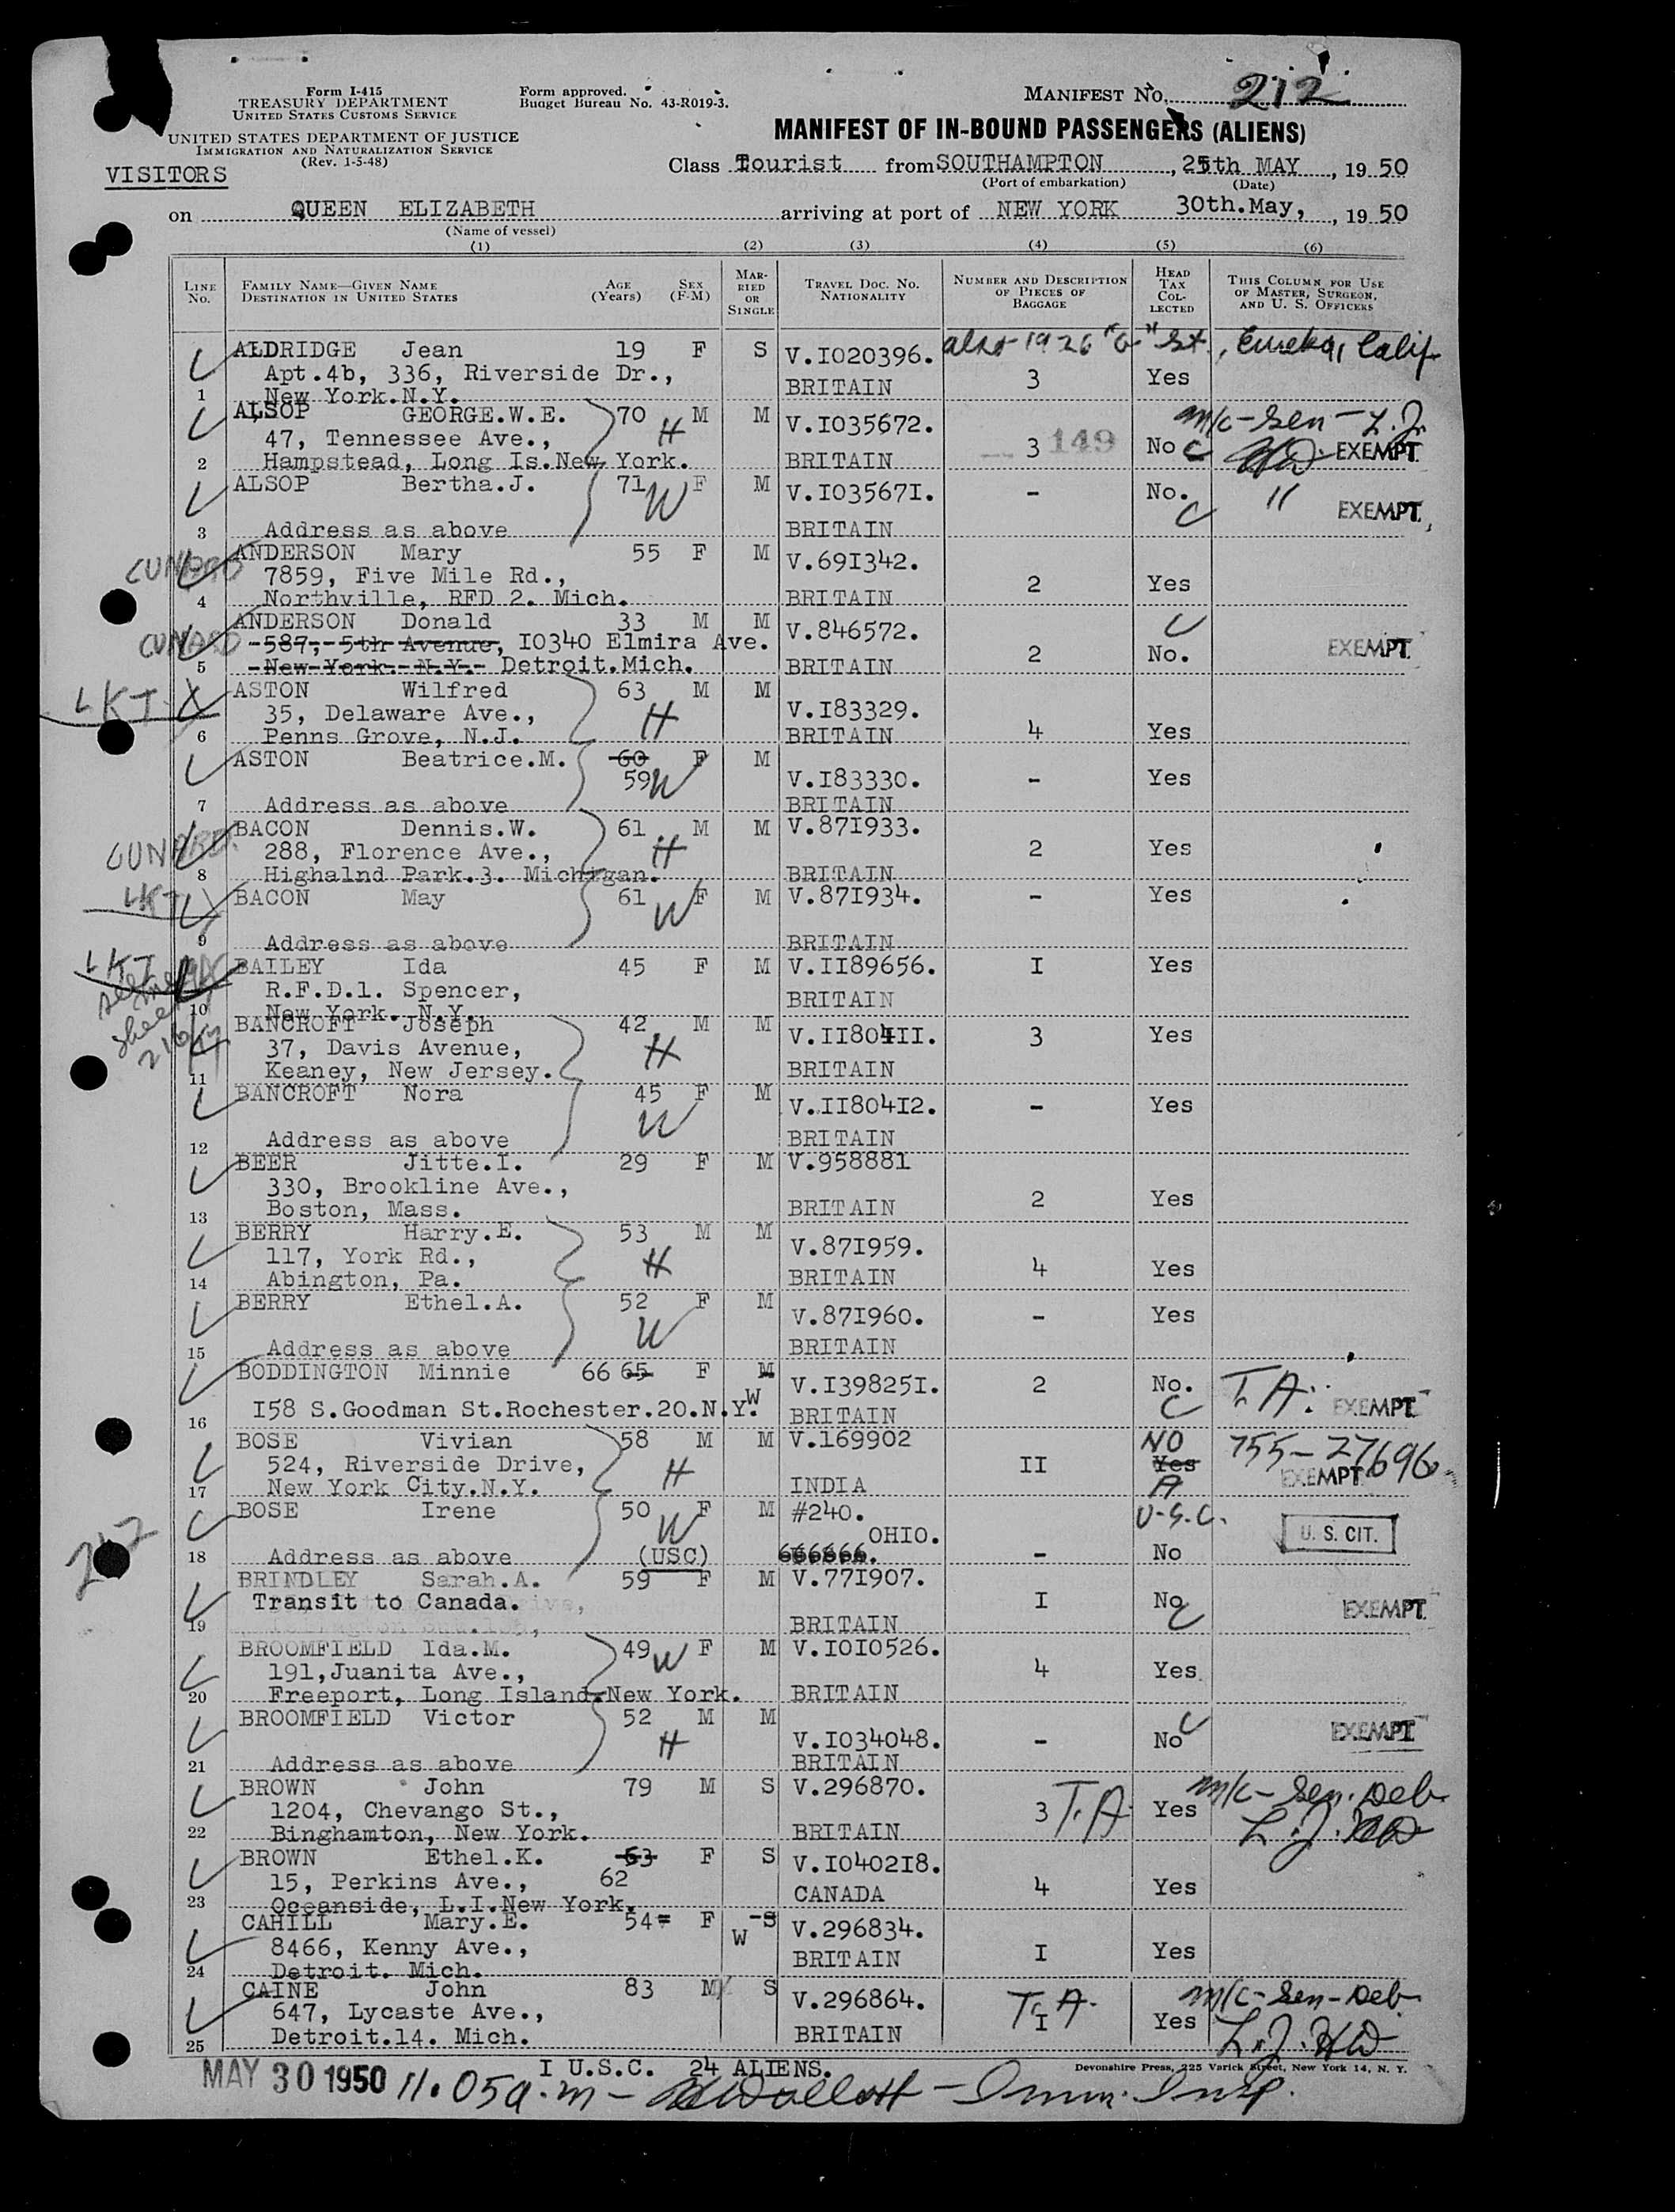 Form I-415
TREASURY DEPARTMENT
UNITED STATES CUSTOMS SERVICE
UNITED STATES DEPARTMENT OF JUSTICE
IMMIGRATION AND NATURALIZATION SERVICE
(Rev. 1-5-48)
Form approved.
Budget Bureau No. 43-R019-3.
MANIFEST NO. 212
MANIFEST OF IN-BOUND PASSENGERS (ALIENS)
VISITORS
Class Tourist from SOUTHAMPTON, 25th MAY, 19 50
(Port of embarkation) (Date)
on QUEEN ELIZABETH arriving at port of NEW YORK 30th.May, , 19 50
(Name of vessel)
(1) (2) (3) (4) (5) (6)
LINE No. FAMILY NAME—GIVEN NAME DESTINATION IN UNITED STATES AGE (Years) SEX (F-M) MARRIED OR SINGLE TRAVEL DOC. NO. NATIONALITY NUMBER AND DESCRIPTION OF PIECES OF BAGGAGE HEAD TAX COLLECTED THIS COLUMN FOR USE OF MASTER, SURGEON, AND U. S. OFFICERS
ALDRIDGE Jean 19 F S V.I020396. also 1926 "G" St., Eureka, Calif
Apt.4b, 336, Riverside Dr.,
1 New York.N.Y. BRITAIN 3 Yes
ALSOP GEORGE.W.E. 70 H M M V.I035672. m/c-Sen-L.J.
47, Tennessee Ave.,
2 Hampstead, Long Is.New York. BRITAIN 3 149 No C HW EXEMPT
ALSOP Bertha.J. 71 W F M V.I03567I. - No. C " EXEMPT
3 Address as above BRITAIN
CUNARD ANDERSON Mary 55 F M V.69I342.
7859, Five Mile Rd.,
4 Northville, RFD 2. Mich. BRITAIN 2 Yes
ANDERSON Donald 33 M M V.846572. C
CUNARD 587, 5th Avenue, I0340 Elmira Ave.
5 New York. N.Y. Detroit.Mich. BRITAIN 2 No. EXEMPT
LKT ASTON Wilfred 63 H M M V.I83329.
35, Delaware Ave.,
6 Penns Grove, N.J. BRITAIN 4 Yes
ASTON Beatrice.M. 60 59 W F M V.I83330. - Yes
7 Address as above BRITAIN
CUNARD BACON Dennis.W. 61 H M M V.87I933.
288, Florence Ave., 2 Yes
8 Highalnd Park.3. Michigan. BRITAIN
LKT BACON May 61 W F M V.87I934. - Yes
9 Address as above BRITAIN
LKT BAILEY Ida 45 F M V.II89656. I Yes
see sheet 216
R.F.D.1. Spencer,
10 New York. N.Y. BRITAIN
BANCROFT Joseph 42 H M M V.II804II. 3 Yes
37, Davis Avenue,
11 Keaney, New Jersey. BRITAIN
BANCROFT Nora 45 W F M V.II804I2. - Yes
12 Address as above BRITAIN
BEER Jitte.I. 29 F M V.958881
330, Brookline Ave.,
13 Boston, Mass. BRITAIN 2 Yes
BERRY Harry.E. 53 H M M V.87I959.
117, York Rd.,
14 Abington, Pa. BRITAIN 4 Yes
BERRY Ethel.A. 52 W F M V.87I960. - Yes
15 Address as above BRITAIN
BODDINGTON Minnie 66 65 F M W V.I39825I. 2 No. C T.A. EXEMPT
16 I58 S.Goodman St.Rochester.20.N.Y. BRITAIN
BOSE Vivian 58 H M M V.169902 NO 755-27696
524, Riverside Drive, II Yes EXEMPT
17 New York City.N.Y. INDIA A
BOSE Irene 50 W F M #240. U.S.C.
OHIO. U. S. CIT.
18 Address as above (USC) - No
BRINDLEY Sarah.A. 59 F M V.77I907.
Transit to Canada. I No C EXEMPT
19 BRITAIN
BROOMFIELD Ida.M. 49 W F M V.I0I0526.
191,Juanita Ave., 4 Yes
20 Freeport, Long Island.New York. BRITAIN
BROOMFIELD Victor 52 H M M V.I034048. - No C EXEMPT
21 Address as above BRITAIN
BROWN John 79 M S V.296870. m/c-Sen. Deb
1204, Chevango St., 3 T.A. Yes L.J. HW
22 Binghamton, New York. BRITAIN
BROWN Ethel.K. 63 F S V.I0402I8.
15, Perkins Ave., 62
23 Oceanside, L.I.New York. CANADA 4 Yes
CAHILL Mary.E. 54 F W S V.296834.
8466, Kenny Ave.,
24 Detroit. Mich. BRITAIN I Yes
CAINE John 83 M S V.296864. T.A. m/c-Sen-Deb
647, Lycaste Ave., I Yes L.J. HW
25 Detroit.14. Mich. BRITAIN
I U.S.C. 24 ALIENS.
Devonshire Press, 225 Varick Street, New York 14, N. Y.
MAY 30 1950 11.05a.m - - Imm. Insp.